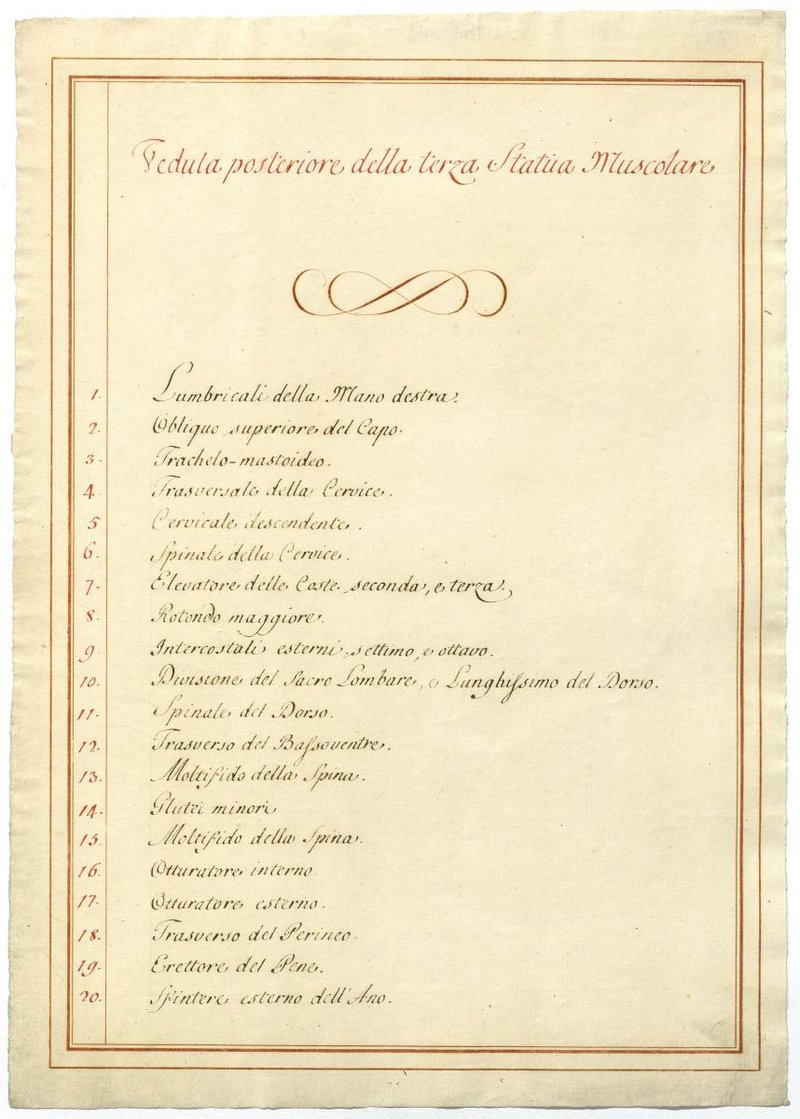 Vedula posteriore della terza Statua Muscolare
1. Lumbricali della Mano destra.
2. Obliquo superiore del Capo.
3. Trachelo-mastoideo.
4. Trasversale della Cervice.
5 Cervicale descendente.
6. Spinale della Cervice.
7. Elevatore delle Coste seconda, e terza.
8. Rotondo maggiore.
9. Intercostali esterni settimo, e ottavo.
10. Divisione del Sacro Lombare, e Lunghissimo del Dorso.
11. Spinale del Dorso.
12. Trasverso del Bassoventre.
13. Moltifido della Spina.
14. Glutei minori
15. Moltifido della Spina.
16. Otturatore interno
17. Otturatore esterno.
18. Trasverso del Perineo.
19. Erettore del Pene.
20. Sfintere esterno dell'Ano.